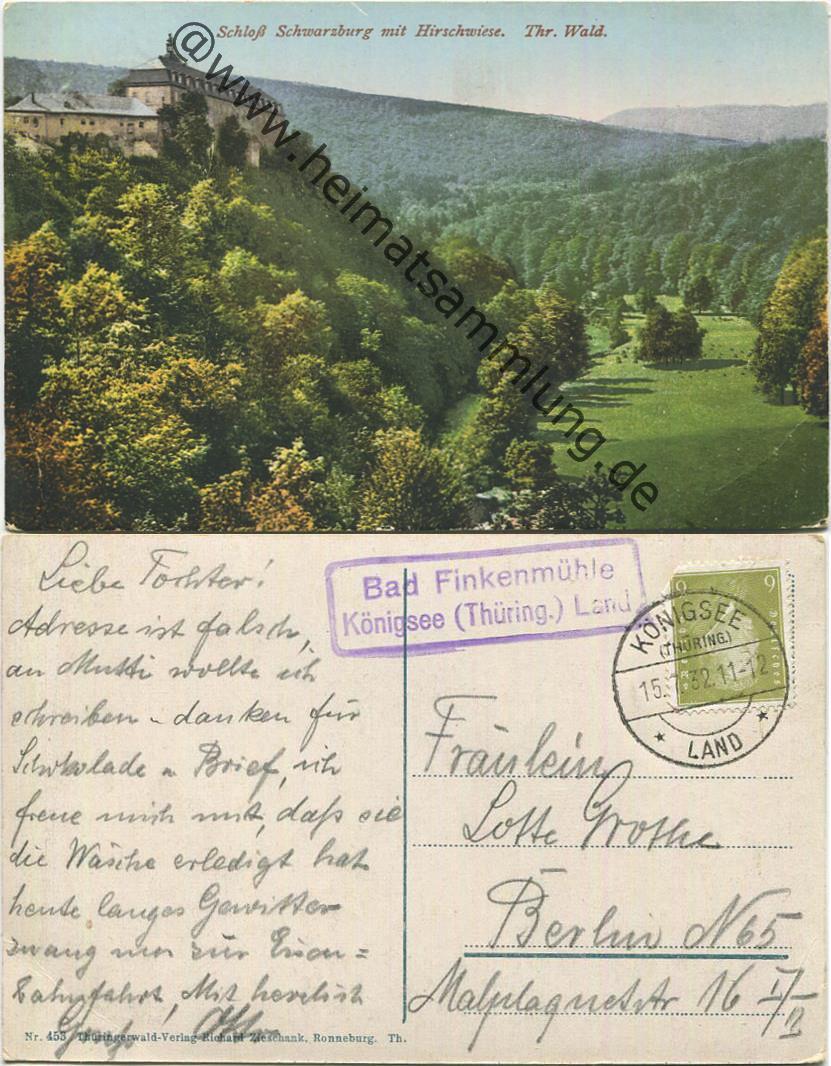 Schloß Schwarzburg mit Hirschwiese. Thr. Wald.
@www.heimatsammlung.de
Liebe Tochter!
Adresse ist falsch,
an Mutti wollte ich
schreiben - danken für
Schokolade u Brief, ich
freue mich mit, daß sie
die Wäsche erledigt hat
heute langes Gewitter
zwang uns zur Eisen=
bahnfahrt, Mit herzlich
Otto
Nr. 453 Thüringerwald-Verlag Richard Zieschank, Ronneburg. Th.
Bad Finkenmühle
Königsee (Thüring.) Land
9 9
KÖNIGSEE
(THÜRING.)
15. 32.11-12
LAND
Fräulein
Lotte Grothe
Berlin N65
Malplaquetstr 16 II/II